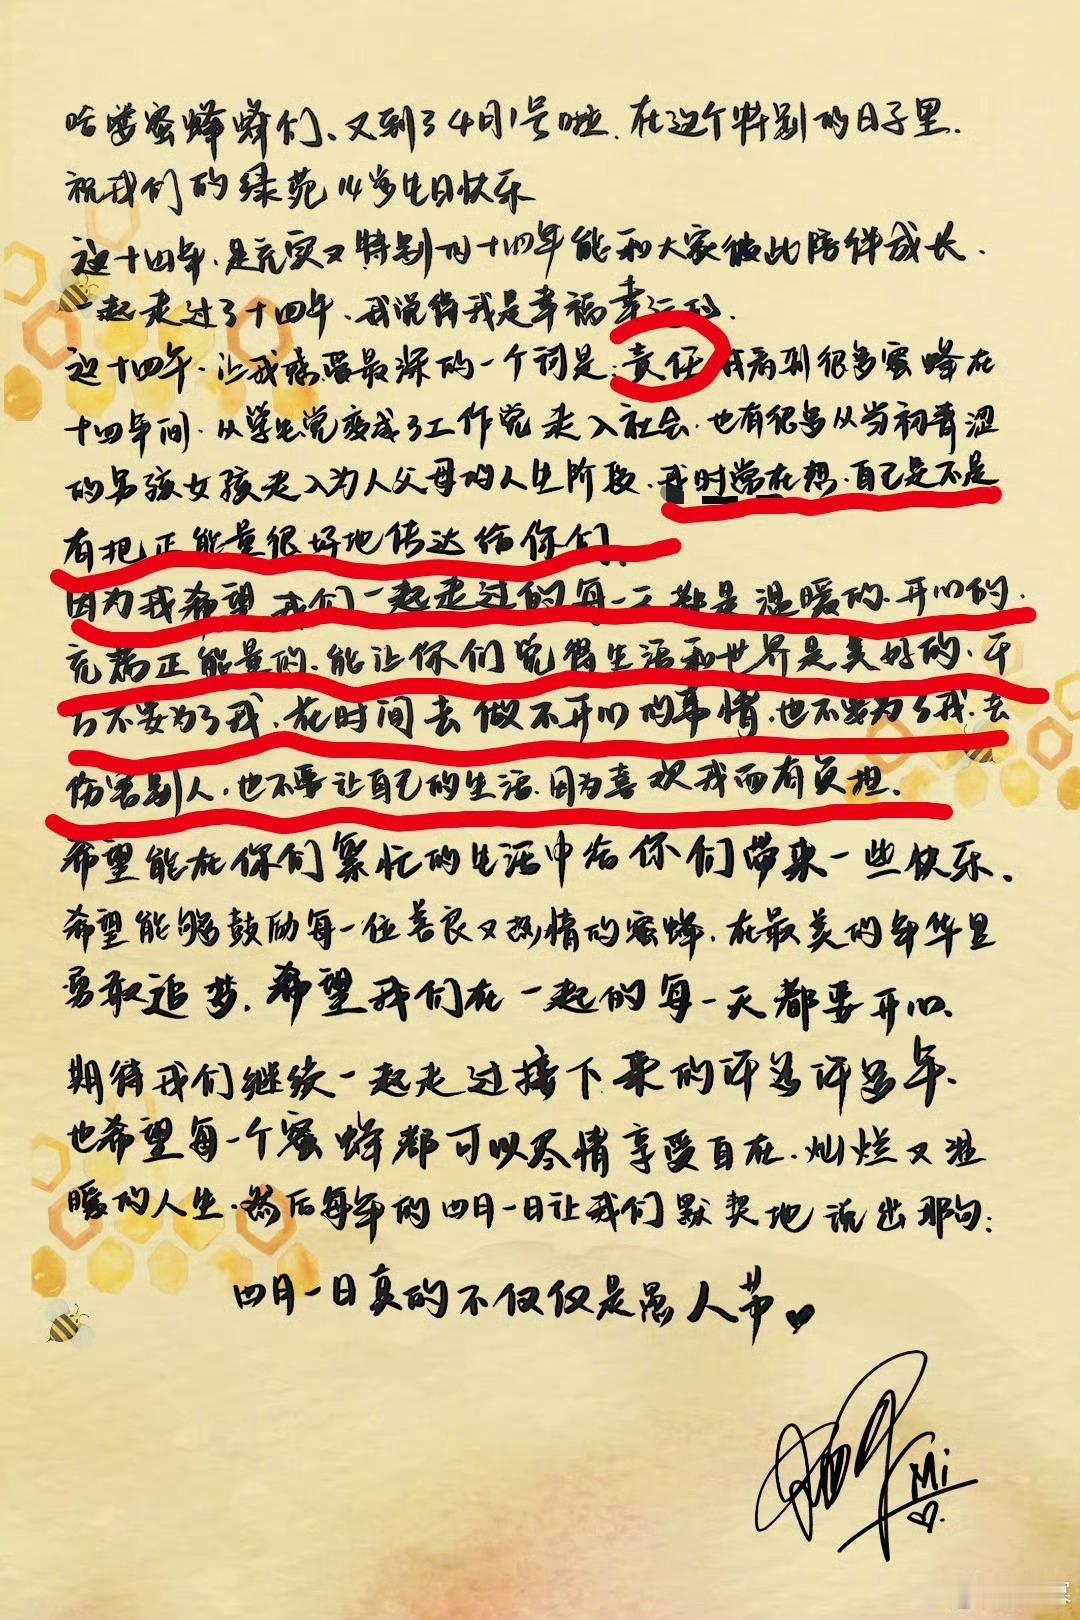 哈喽蜜蜂蜂们、又到了4月1号啦.在这个特别的日子里.
祝我们的绿苑14岁生日快乐
这十四年.是充实又特别的十四年能和大家彼此陪伴成长.
一起走过了十四年、我觉得我是幸福幸运的.
这十四年.让我感受最深的一个词是:责任 我看到很多蜜蜂在
十四年间.从学生党变成了工作党走入社会.也有很多从当初青涩
的男孩女孩走入为人父母的人生阶段.我时常在想.自己是不是
有把正能量很好地传达给你们.
因为我希望我们一起走过的每一天都是温暖的.开心的.
充满正能量的、能让你们觉得生活和世界是美好的.千
万不要为了我.花时间去做不开心的事情.也不要为了我.去
伤害别人.也不要让自己的生活.因为喜欢我而有负担.
希望能在你们繁忙的生活中给你们带来一些快乐.
希望能够鼓励每一位善良又热情的蜜蜂.在最美的年华里
勇敢追梦.希望我们在一起的每一天都要开心、
期待我们继续一起走过接下来的许多许多年、
也希望每一个蜜蜂都可以尽情享受自在.灿烂又温
暖的人生.然后每年的四月一日让我们默契地说出那句:
四月一日真的不仅仅是愚人节
Mi